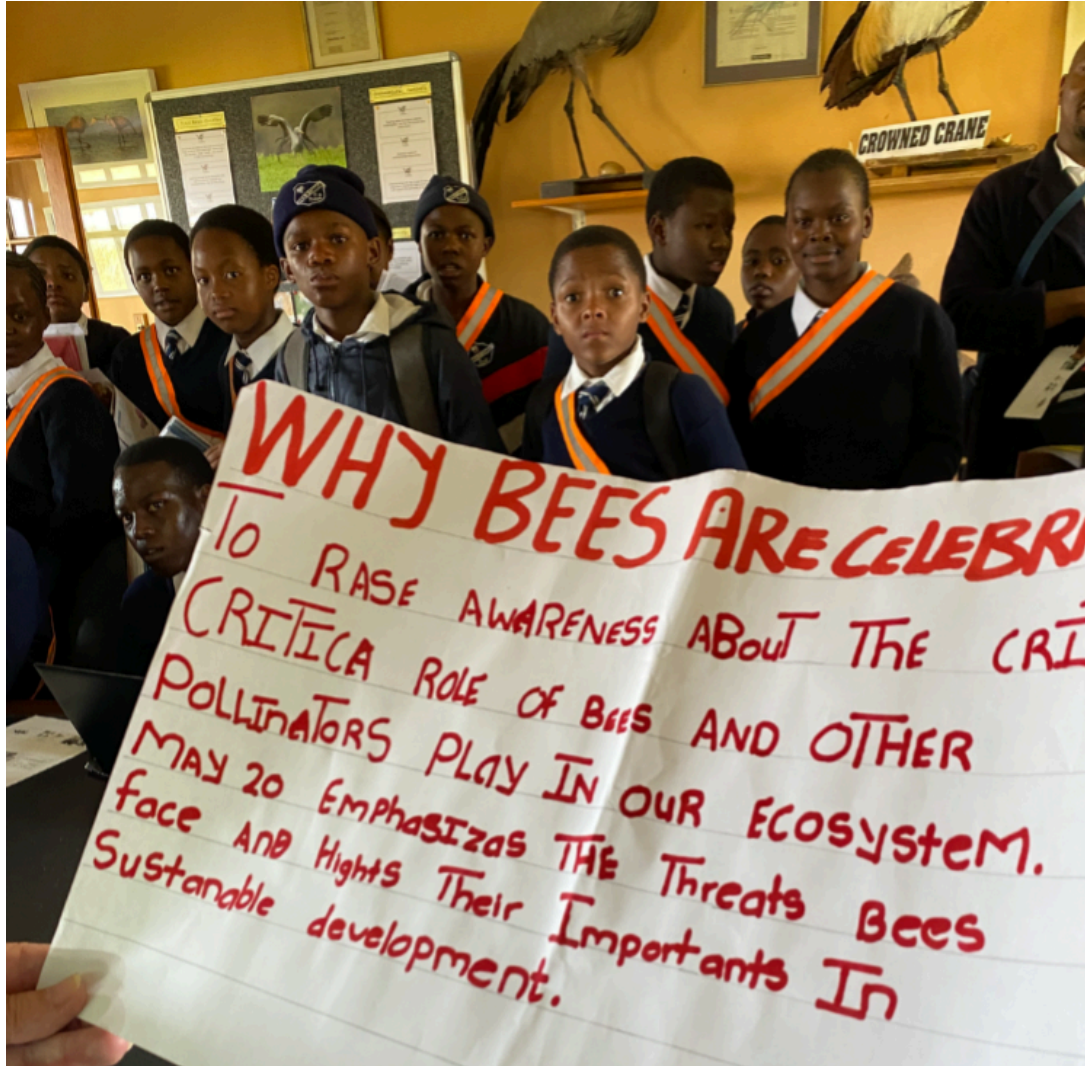 CROWNED CRANE
WHY BEES ARE CELEBR
TO RASE AWARENESS ABOUT THE CRI
CRITICA ROLE OF BEES AND OTHER
POLLINATORS PLAY IN OUR ECOSYSTEM.
MAY 20 EMPHASIZAS THE Threats Bees
face AND Hights Their Importants In
Sustanable development.